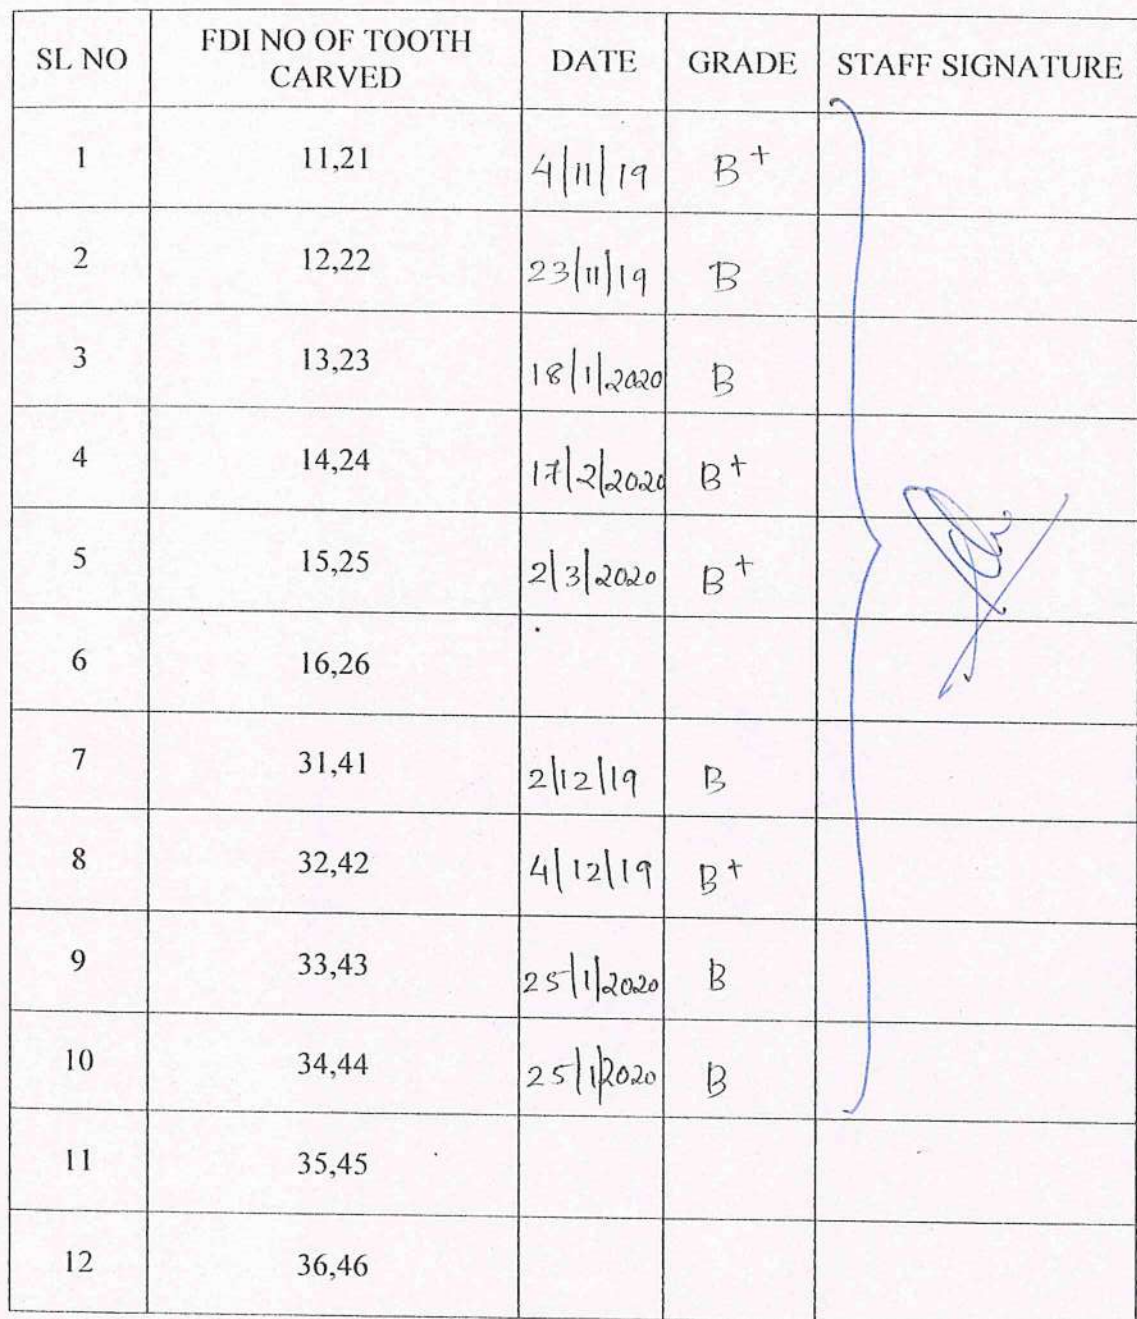 SL NO FDI NO OF TOOTH CARVED DATE GRADE STAFF SIGNATURE
1 11,21 4/11/19 B+
2 12,22 23/11/19 B
3 13,23 18/1/2020 B
4 14,24 17/2/2020 B+
5 15,25 2/3/2020 B+
6 16,26
7 31,41 2/12/19 B
8 32,42 4/12/19 B+
9 33,43 25/1/2020 B
10 34,44 25/1/2020 B
11 35,45
12 36,46